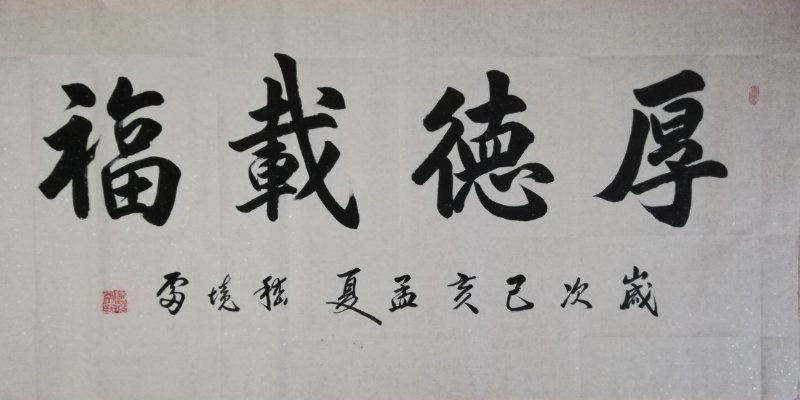 厚德載福
歲次己亥孟夏嵇境雷